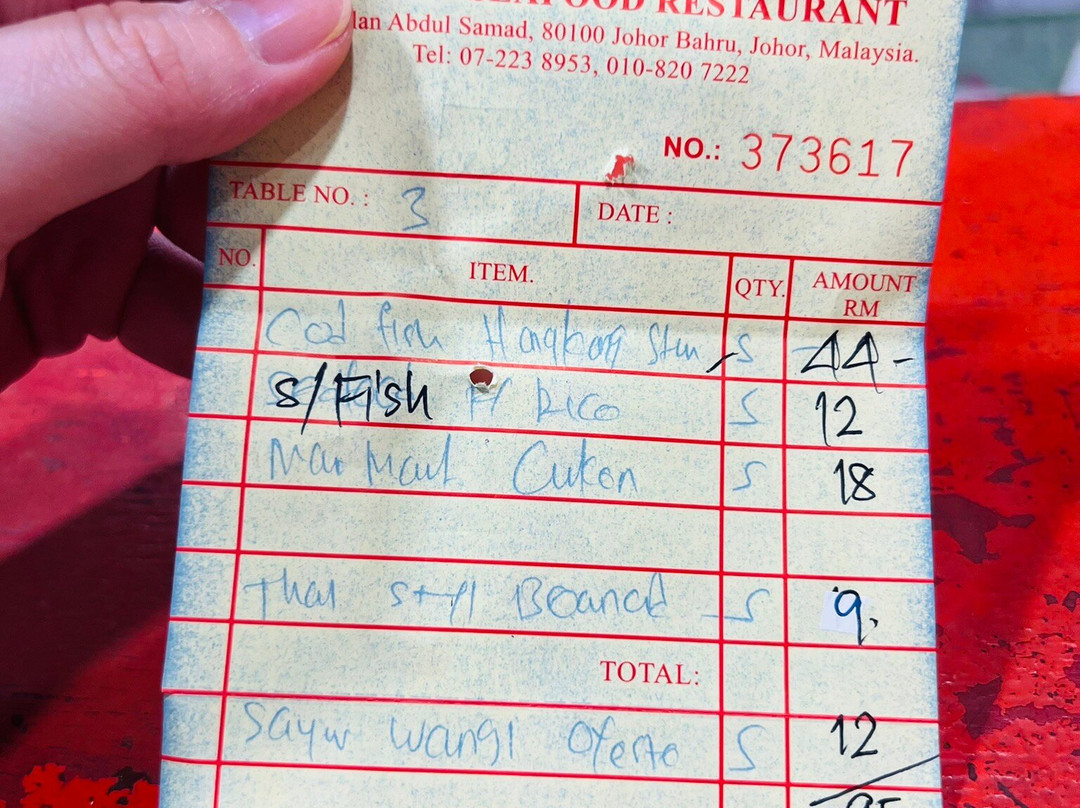 SEAFOOD RESTAURANT
lan Abdul Samad, 80100 Johor Bahru, Johor, Malaysia.
Tel: 07-223 8953, 010-820 7222
NO.: 373617
TABLE NO. : 3 DATE :
NO. ITEM. QTY. AMOUNT RM
Cod fish Hongkong S 44-
S/Fish F/ Rice S 12
S 18
Thai Style S 9.
TOTAL:
Sayur wangi S 12